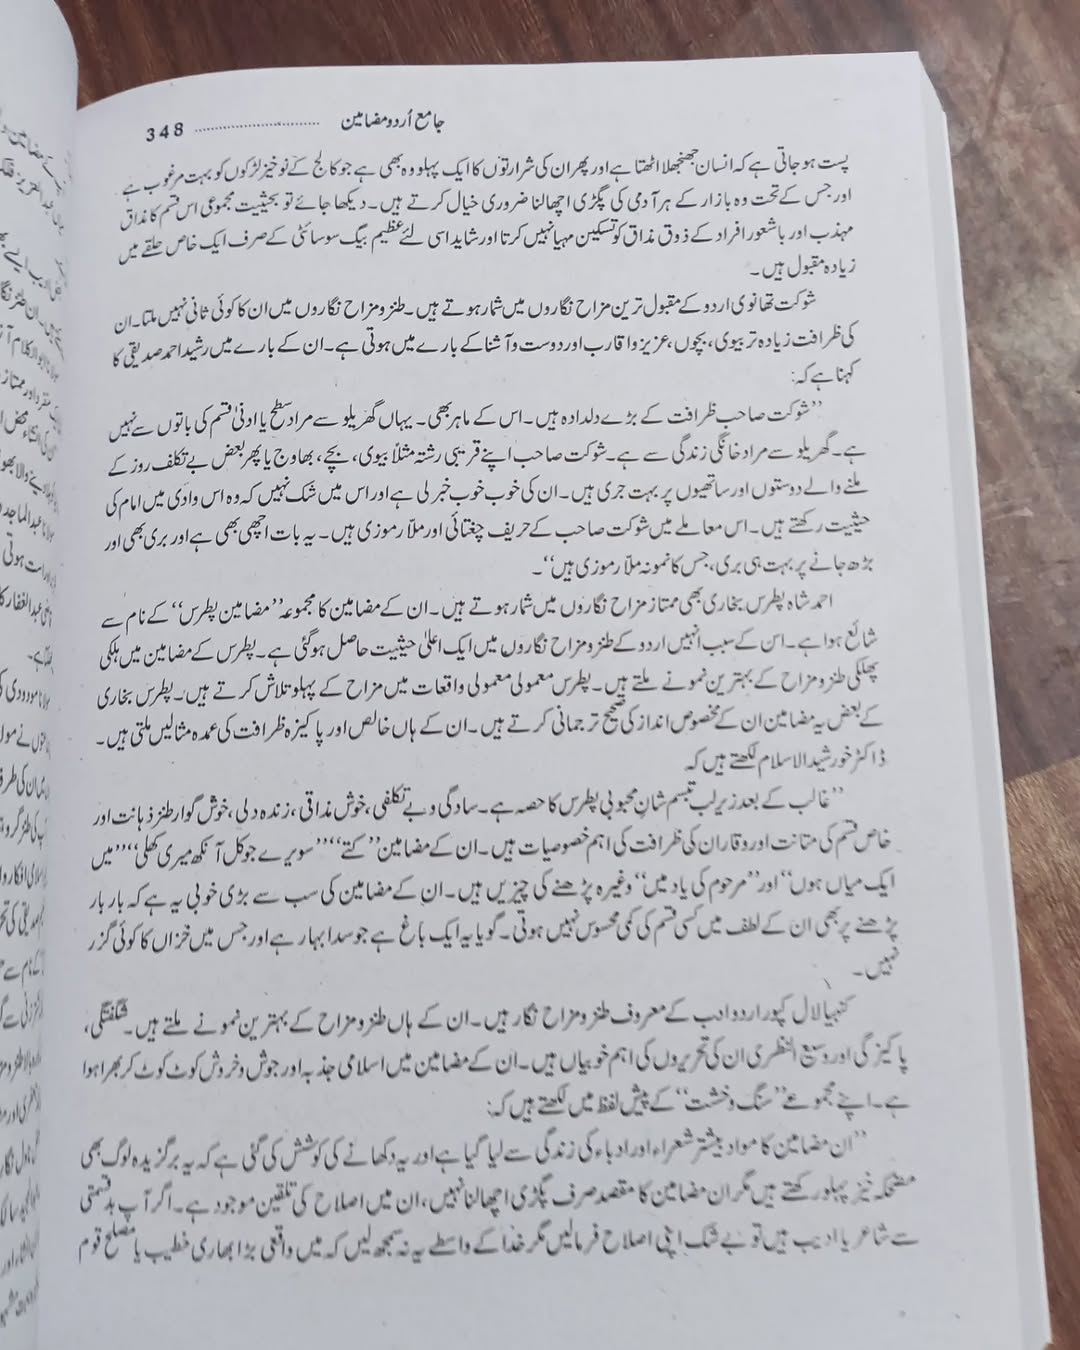 جامع اُردو مضامین ............................ 348
پست ہو جاتی ہے کہ انسان جھنجھلا اٹھتا ہے اور پھر ان کی شرارتوں کا ایک پہلو وہ بھی ہے جو کالج کے نوخیز لڑکوں کو بہت مرغوب ہے
اور جس کے تحت وہ بازار کے ہر آدمی کی پگڑی اچھالنا ضروری خیال کرتے ہیں۔ دیکھا جائے تو بحیثیت مجموعی اس قسم کا مذاق
مہذب اور باشعور افراد کے ذوق مذاق کو تسکین مہیا نہیں کرتا اور شاید اسی لئے عظیم بیگ سوسائٹی کے صرف ایک خاص حلقے میں
زیادہ مقبول ہیں۔
شوکت تھانوی اردو کے مقبول ترین مزاح نگاروں میں شمار ہوتے ہیں۔ طنز و مزاح نگاروں میں ان کا کوئی ثانی نہیں ملتا۔ ان
کی ظرافت زیادہ تر بیوی، بچوں، عزیز و اقارب اور دوست و آشنا کے بارے میں ہوتی ہے۔ ان کے بارے میں رشید احمد صدیقی کا
کہنا ہے کہ:
”شوکت صاحب ظرافت کے بڑے دلدادہ ہیں۔ اس کے ماہر بھی۔ یہاں گھریلو سے مراد سطح یا ادنیٰ قسم کی باتوں سے نہیں
ہے۔ گھریلو سے مراد خانگی زندگی سے ہے۔ شوکت صاحب اپنے قریبی رشتہ مثلاً بیوی، بچے، بھاوج یا پھر بعض بے تکلف روز کے
ملنے والے دوستوں اور ساتھیوں پر بہت جری ہیں۔ ان کی خوب خوب خبر لی ہے اور اس میں شک نہیں کہ وہ اس وادی میں امام کی
حیثیت رکھتے ہیں۔ اس معاملے میں شوکت صاحب کے حریف چغتائی اور ملّا رموزی ہیں۔ یہ بات اچھی بھی ہے اور بری بھی اور
بڑھ جانے پر بہت ہی بری، جس کا نمونہ ملّا رموزی ہیں“۔
احمد شاہ پطرس بخاری بھی ممتاز مزاح نگاروں میں شمار ہوتے ہیں۔ ان کے مضامین کا مجموعہ ”مضامین پطرس“ کے نام سے
شائع ہوا ہے۔ اس کے سبب انہیں اردو کے طنز و مزاح نگاروں میں ایک اعلیٰ حیثیت حاصل ہو گئی ہے۔ پطرس کے مضامین میں ہلکی
پھلکی طنز و مزاح کے بہترین نمونے ملتے ہیں۔ پطرس معمولی معمولی واقعات میں مزاح کے پہلو تلاش کرتے ہیں۔ پطرس بخاری
کے بعض یہ مضامین ان کے مخصوص انداز کی صحیح ترجمانی کرتے ہیں۔ ان کے ہاں خالص اور پاکیزہ ظرافت کی عمدہ مثالیں ملتی ہیں۔
ڈاکٹر خورشید الاسلام لکھتے ہیں کہ
”غالب کے بعد زیر لب تبسم شانِ محبوبی پطرس کا حصہ ہے۔ سادگی و بے تکلفی، خوش مذاقی، زندہ دلی، خوش گوار طنز ذہانت اور
خاص قسم کی متانت اور وقار ان کی ظرافت کی اہم خصوصیات ہیں۔ ان کے مضامین ”کتے“ ”سویرے جو کل آنکھ میری کھلی“ ”میں
ایک میاں ہوں“ اور ”مرحوم کی یاد میں“ وغیرہ پڑھنے کی چیزیں ہیں۔ ان کے مضامین کی سب سے بڑی خوبی یہ ہے کہ بار بار
پڑھنے پر بھی ان کے لطف میں کسی قسم کی کمی محسوس نہیں ہوتی۔ گویا یہ ایک باغ ہے جو سدا بہار ہے اور جس میں خزاں کا کوئی گزر
نہیں۔
کنہیا لال کپور اردو ادب کے معروف طنز و مزاح نگار ہیں۔ ان کے ہاں طنز و مزاح کے بہترین نمونے ملتے ہیں۔ شگفتگی،
پاکیزگی اور وسیع النظری ان کی تحریروں کی اہم خوبیاں ہیں۔ ان کے مضامین میں اسلامی جذبہ اور جوش و خروش کوٹ کوٹ کر بھرا ہوا
ہے۔ اپنے مجموعے ”سنگ و خشت“ کے پیش لفظ میں لکھتے ہیں کہ:
”ان مضامین کا مواد بیشتر شعراء اور ادباء کی زندگی سے لیا گیا ہے اور یہ دکھانے کی کوشش کی گئی ہے کہ یہ برگزیدہ لوگ بھی
مضحکہ خیز پہلو رکھتے ہیں مگر ان مضامین کا مقصد صرف پگڑی اچھالنا نہیں، ان میں اصلاح کی تلقین موجود ہے۔ اگر آپ بدقسمتی
سے شاعر یا ادیب ہیں تو بے شک اپنی اصلاح فرمالیں مگر خدا کے واسطے یہ نہ سمجھ لیں کہ میں واقعی بڑا بھاری خطیب یا مصلح قوم